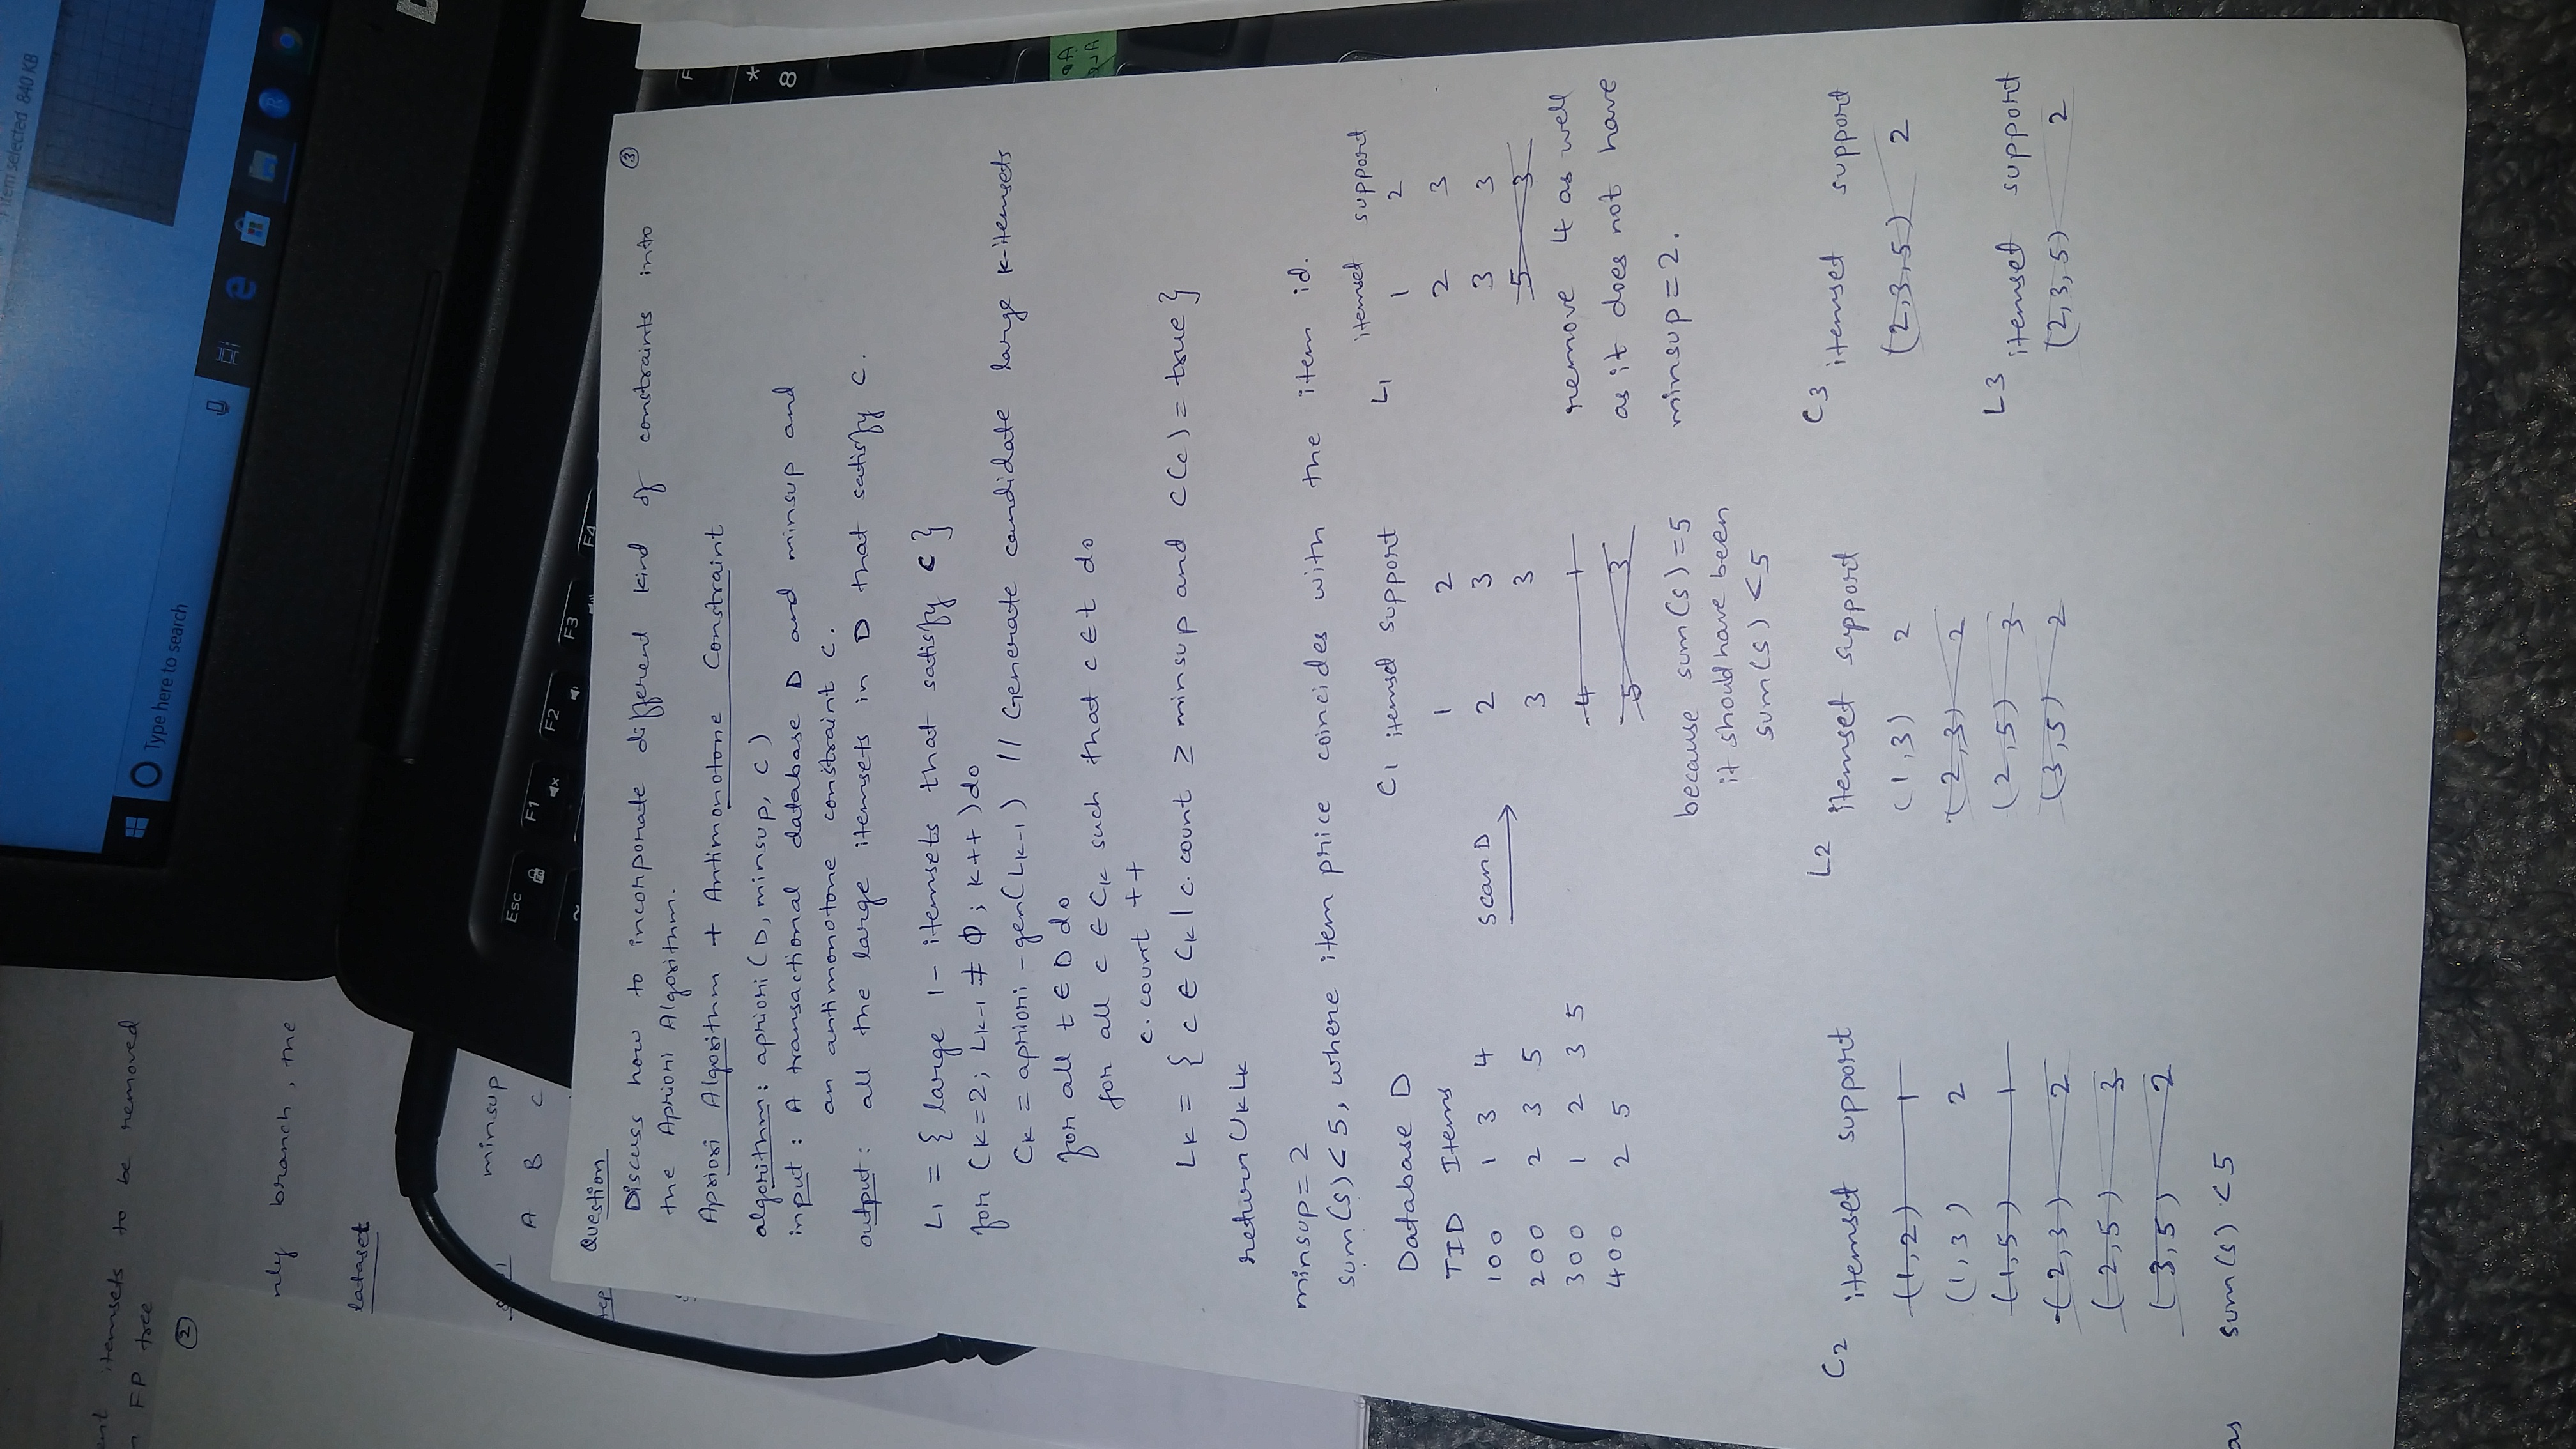 1 item selected 840 KB
Type here to search
itemsets to be removed
FP tree
2
branch, the
minsup
A B C
Esc
F1
F2
F3
F4
F
*
8
Question
3
Discuss how to incorporate different kind of constraints into
the Apriori Algorithm.
Apriori Algorithm + Antimonotone Constraint
algorithm: apriori (D, minsup, C)
input: A transactional database D and minsup and
an antimonotone constraint C.
output: all the large itemsets in D that satisfy C.
L1 = { large 1- itemsets that satisfy C }
for (K=2; LK-1 ≠ Φ; K++) do
CK = apriori-gen(LK-1) // Generate candidate large K-itemsets
for all t ∈ D do
for all c ∈ CK such that c ∈ t do
c.count ++
LK = { c ∈ CK | c.count ≥ minsup and C(c) = true }
return UK LK
minsup = 2
sum(s) < 5, where item price coincides with the item id.
Database D
TID Items
100 1 3 4
200 2 3 5
300 1 2 3 5
400 2 5
scan D
C1 itemset support
1 2
2 3
3 3
4 1
5 3
because sum(s) = 5
it should have been
sum(s) < 5
L1 itemset support
1 2
2 3
3 3
5 3
remove 4 as well
as it does not have
minsup = 2.
C2 itemset support
(1,2) 1
(1,3) 2
(1,5) 1
(2,3) 2
(2,5) 3
(3,5) 2
as sum(s) < 5
L2 itemset support
(1,3) 2
(2,3) 2
(2,5) 3
(3,5) 2
C3 itemset support
(2,3,5) 2
L3 itemset support
(2,3,5) 2